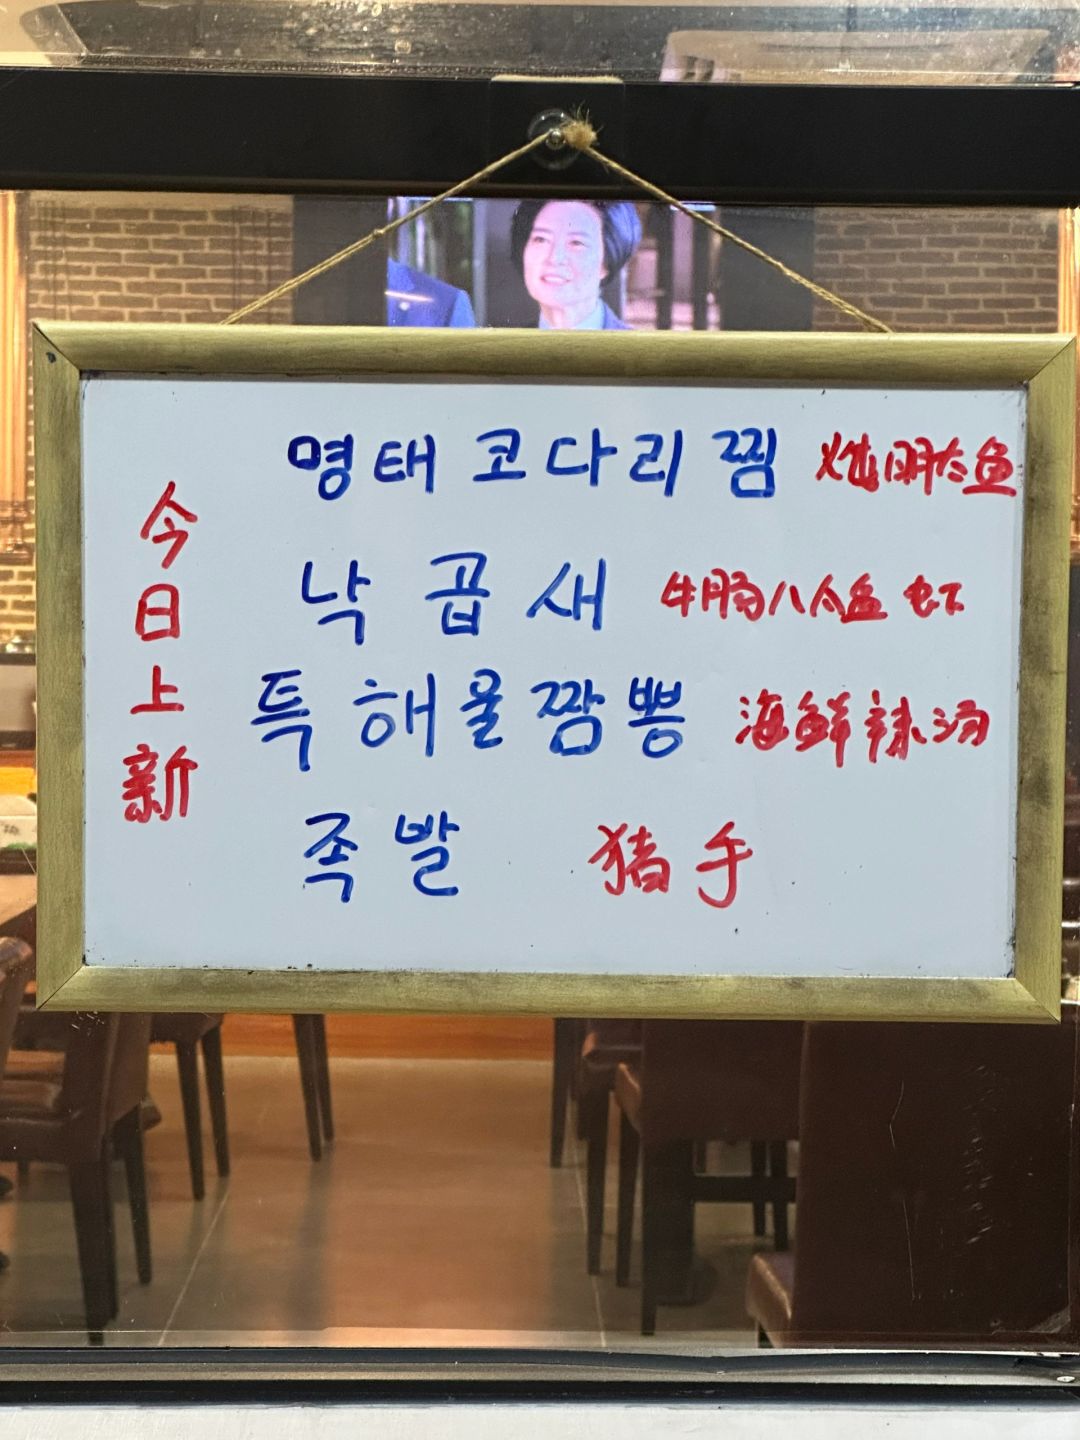 今日上新
명태 코다리찜 炖明太鱼
낙곱새 牛肠八爪鱼 虾
특해물짬뽕 海鲜辣汤
족발 猪手